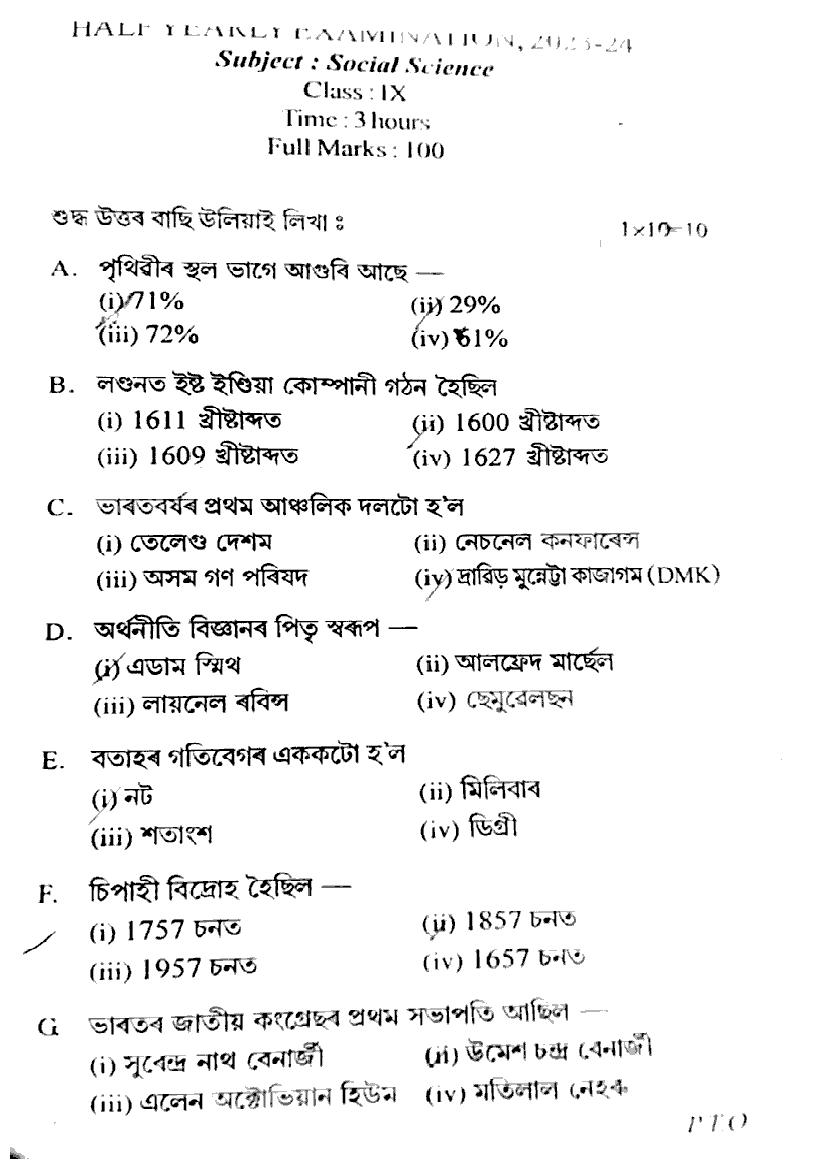 HALF YEARLY EXAMINATION, 2023-24
Subject : Social Science
Class : IX
Time : 3 hours
Full Marks : 100
শুদ্ধ উত্তৰ বাছি উলিয়াই লিখা ঃ 1×10=10
A. পৃথিৱীৰ স্থল ভাগে আগুৰি আছে —
(i) 71% (ii) 29%
(iii) 72% (iv) 61%
B. লণ্ডনত ইষ্ট ইণ্ডিয়া কোম্পানী গঠন হৈছিল
(i) 1611 খ্ৰীষ্টাব্দত (ii) 1600 খ্ৰীষ্টাব্দত
(iii) 1609 খ্ৰীষ্টাব্দত (iv) 1627 খ্ৰীষ্টাব্দত
C. ভাৰতবৰ্ষৰ প্ৰথম আঞ্চলিক দলটো হ'ল
(i) তেলেগু দেশম (ii) নেচনেল কনফাৰেন্স
(iii) অসম গণ পৰিষদ (iv) দ্ৰাৱিড় মুন্নেট্ৰা কাজাগম (DMK)
D. অৰ্থনীতি বিজ্ঞানৰ পিতৃ স্বৰূপ —
(i) এডাম স্মিথ (ii) আলফ্ৰেদ মাৰ্ছেল
(iii) লায়নেল ৰবিন্স (iv) ছেমুৱেলছন
E. বতাহৰ গতিবেগৰ এককটো হ'ল
(i) নট (ii) মিলিবাৰ
(iii) শতাংশ (iv) ডিগ্ৰী
F. চিপাহী বিদ্ৰোহ হৈছিল —
(i) 1757 চনত (ii) 1857 চনত
(iii) 1957 চনত (iv) 1657 চনত
G ভাৰতৰ জাতীয় কংগ্ৰেছৰ প্ৰথম সভাপতি আছিল —
(i) সুৰেন্দ্ৰ নাথ বেনাৰ্জী (ii) উমেশ চন্দ্ৰ বেনাৰ্জী
(iii) এলেন অক্টোভিয়ান হিউম (iv) মতিলাল নেহৰু
P.T.O